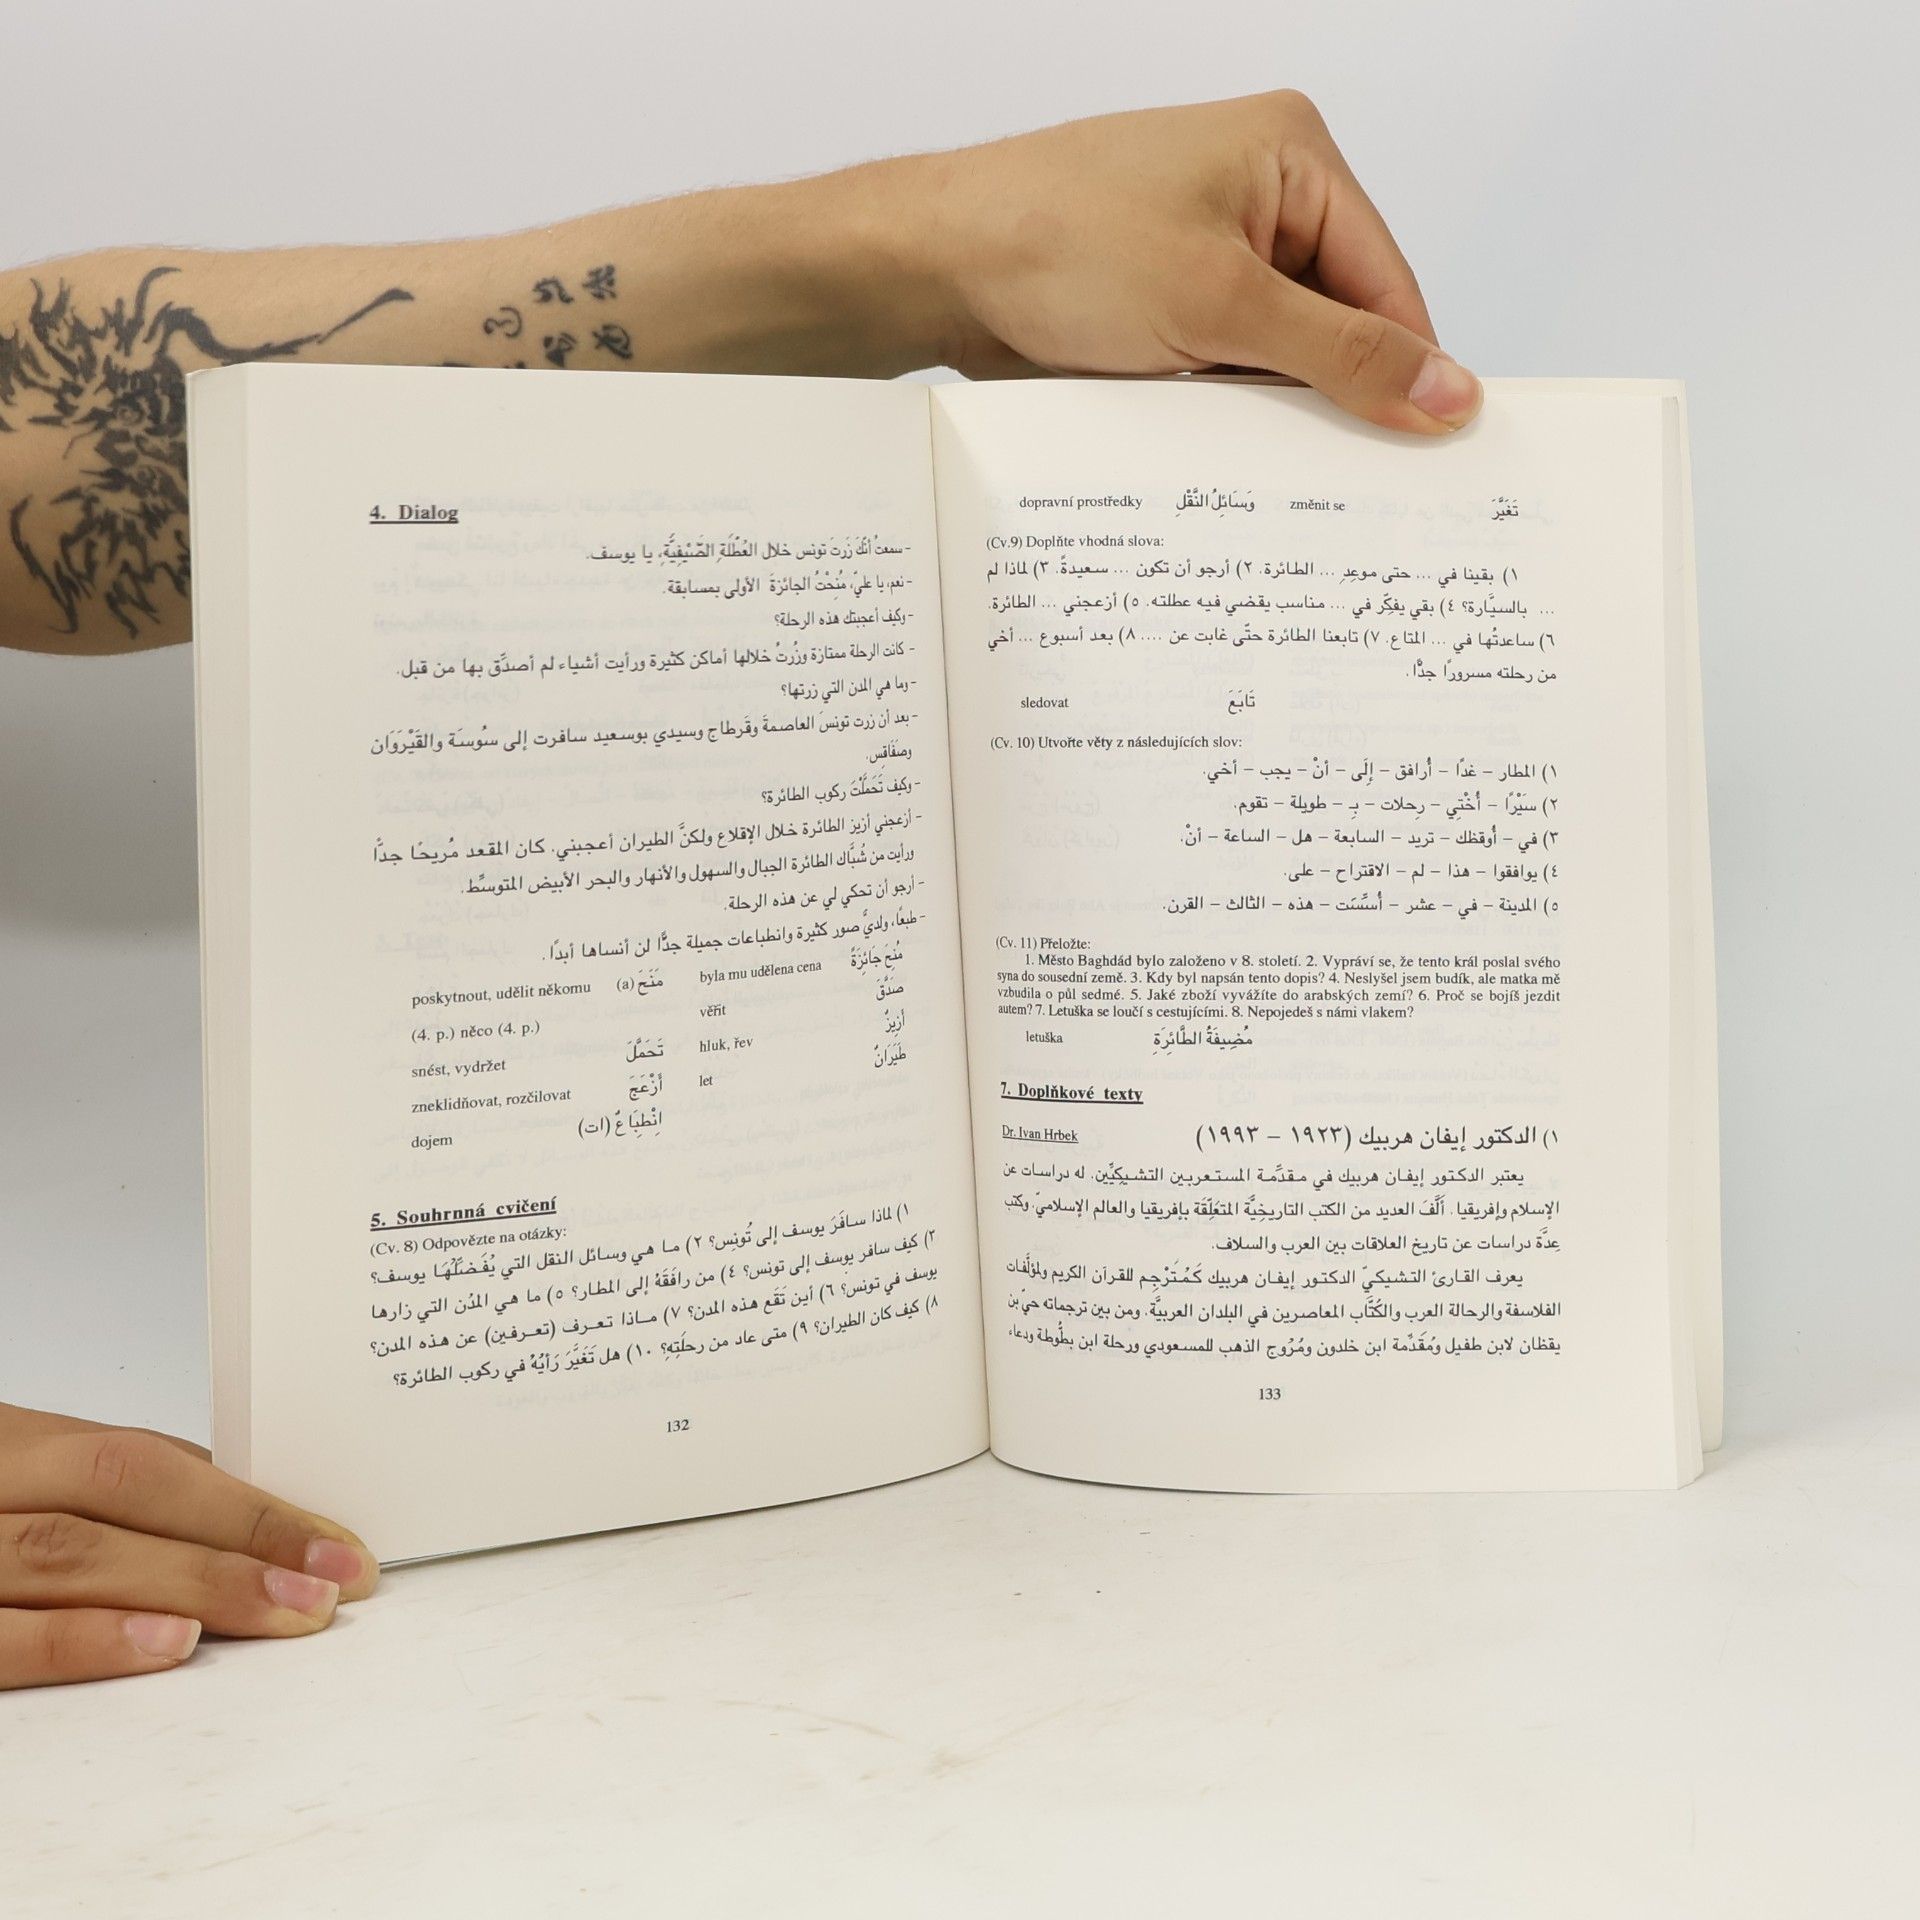 4. Dialog
- سمعتُ أنّكَ زَرتَ تونس خلال العُطْلَةِ الصَّيْفِيَّةِ، يا يوسف.
- نعم، يا عليّ، مُنِحْتُ الجائزةَ الأولى بمسابقة.
- وكيف أعجبتك هذه الرحلة؟
- كانت الرحلة ممتازة وزُرتُ خلالها أماكن كثيرة ورأيت أشياء لم أصدَّق بها من قبل.
- وما هي المدن التي زرتها؟
- بعد أن زرت تونسَ العاصمةَ وقَرطاج وسيدي بوسعيد سافرت إلى سُوسَة والقَيْرَوَان
وصَفَاقِس.
- وكيف تَحَمَّلْتَ ركوب الطائرة؟
- أزعجني أزيز الطائرة خلال الإقلاع ولكنَّ الطيران أعجبني. كان المقعد مُريحًا جدًّا
ورأيت من شُبَّاك الطائرة الجبال والسهول والأنهار والبحر الأبيض المتوسِّط.
- أرجو أن تحكي لي عن هذه الرحلة.
- طبعًا، ولديَّ صور كثيرة وانطباعات جميلة جدًّا لن أنساها أبدًا.
poskytnout, udělit někomu مَنَحَ (a) byla mu udělena cena مُنِحَ جَائِزَةً
(4. p.) něco (4. p.) věřit صَدَّقَ
snést, vydržet تَحَمَّلَ hluk, řev أَزِيزٌ
zneklidňovat, rozčilovat أَزْعَجَ let طَيَرَانٌ
dojem اِنْطِبَاعٌ (ات)
5. Souhrnná cvičení
(Cv. 8) Odpovězte na otázky:
١) لماذا سافَرَ يوسف إلى تُونِس؟ ٢) ما هي وسائل النقل التي يُفَضِّلُهَا يوسف؟
٣) كيف سافر يوسف إلى تونس؟ ٤) من رافَقَهُ إلى المطار؟ ٥) ما هي المدُن التي زارها
يوسف في تونس؟ ٦) أين تَقَع هذه المدن؟ ٧) مـاذا تعـرف (تعـرفين) عن هذه المدن؟
٨) كيف كان الطيران؟ ٩) متى عاد من رحلَتِهِ؟ ١٠) هل تَغَيَّرَ رَأيُهُ في ركوب الطائرة؟
132
dopravní prostředky وَسَائِلُ النَّقْلِ změnit se تَغَيَّرَ
(Cv.9) Doplňte vhodná slova:
١) بقينا في ... حتى موعِدِ ... الطائرة. ٢) أرجو أن تكون ... سعيدةً. ٣) لماذا لم
... بالسيَّارة؟ ٤) بقي يفكِّر في ... مناسب يقضي فيه عطلته. ٥) أزعجني ... الطائرة.
٦) ساعدتُها في ... المتاع. ٧) تابعنا الطائرة حتّى غابت عن .... ٨) بعد أسبوع ... أخي
من رحلته مسرورًا جدًّا.
sledovat تَابَعَ
(Cv. 10) Utvořte věty z následujících slov:
١) المطار – غدًا – أُرافق – إلَى – أنْ – يجب – أخي.
٢) سَيْرًا – أُخْتِي – رِحلات – بِـ – طويلة – تقوم.
٣) في – أُوقظك – تريد – السابعة – هل – الساعة – أنْ.
٤) يوافقوا – هذا – لم – الاقتراح – على.
٥) المدينة – في – عشر – أُسِّسَت – هذه – الثالث – القرن.
(Cv. 11) Přeložte:
1. Město Baghdád bylo založeno v 8. století. 2. Vypráví se, že tento král poslal svého
syna do sousední země. 3. Kdy byl napsán tento dopis? 4. Neslyšel jsem budík, ale matka mě
vzbudila o půl sedmé. 5. Jaké zboží vyvážíte do arabských zemí? 6. Proč se bojíš jezdit
autem? 7. Letuška se loučí s cestujícími. 8. Nepojedeš s námi vlakem?
letuška مُضِيفَةُ الطَّائِرَةِ
7. Doplňkové texty
Dr. Ivan Hrbek ١) الدكتور إيفان هربيك (١٩٢٣ – ١٩٩٣)
يعتبر الدكـتور إيفـان هربيك في مـقدِّمـة المستـعربين التشـيكِيِّين. له دراسـات عن
الإسلام وإفريقيا. أَلَّفَ العديد من الكتب التاريخِيَّة المتَعَلِّقَة بإفريقيا والعالم الإسلاميّ. وكتب
عِدَّة دراسات عن تاريخ العلاقات بين العرب والسلاف.
يعرف القارئ التـشيكيّ الدكتور إيفان هربيك كَمُتَرْجِم للقرآن الكريم ولمؤلَّفات
الفلاسفة والرحالة العرب والكُتَّاب المعاصرين في البلدان العربيَّة. ومن بين ترجماته حيّ بن
يقظان لابن طفيل ومُقَدِّمة ابن خلدون ومُرُوج الذهب للمسعودي ورحلة ابن بطُّوطة ودعاء
133